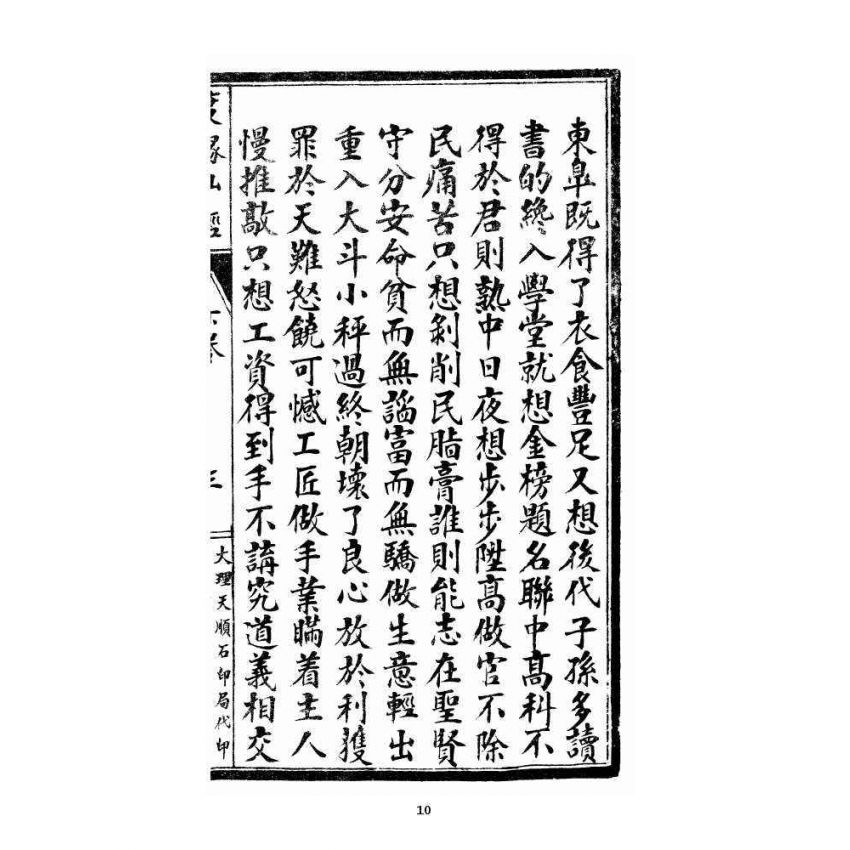 東臯既得了衣食豐足又想後代子孫多讀
書的纔入學堂就想金榜題名聯中高科不
得於君則熱中日夜想步步陞高做官不除
民痛苦只想剝削民脂膏誰則能志在聖賢
守分安命貧而無諂富而無驕做生意輕出
重入大斗小秤過終朝壞了良心放於利獲
罪於天難恕饒可憾工匠做手業瞞着主人
慢推敲只想工資得到手不講究道義相交
三
大理天順石印局代印
10